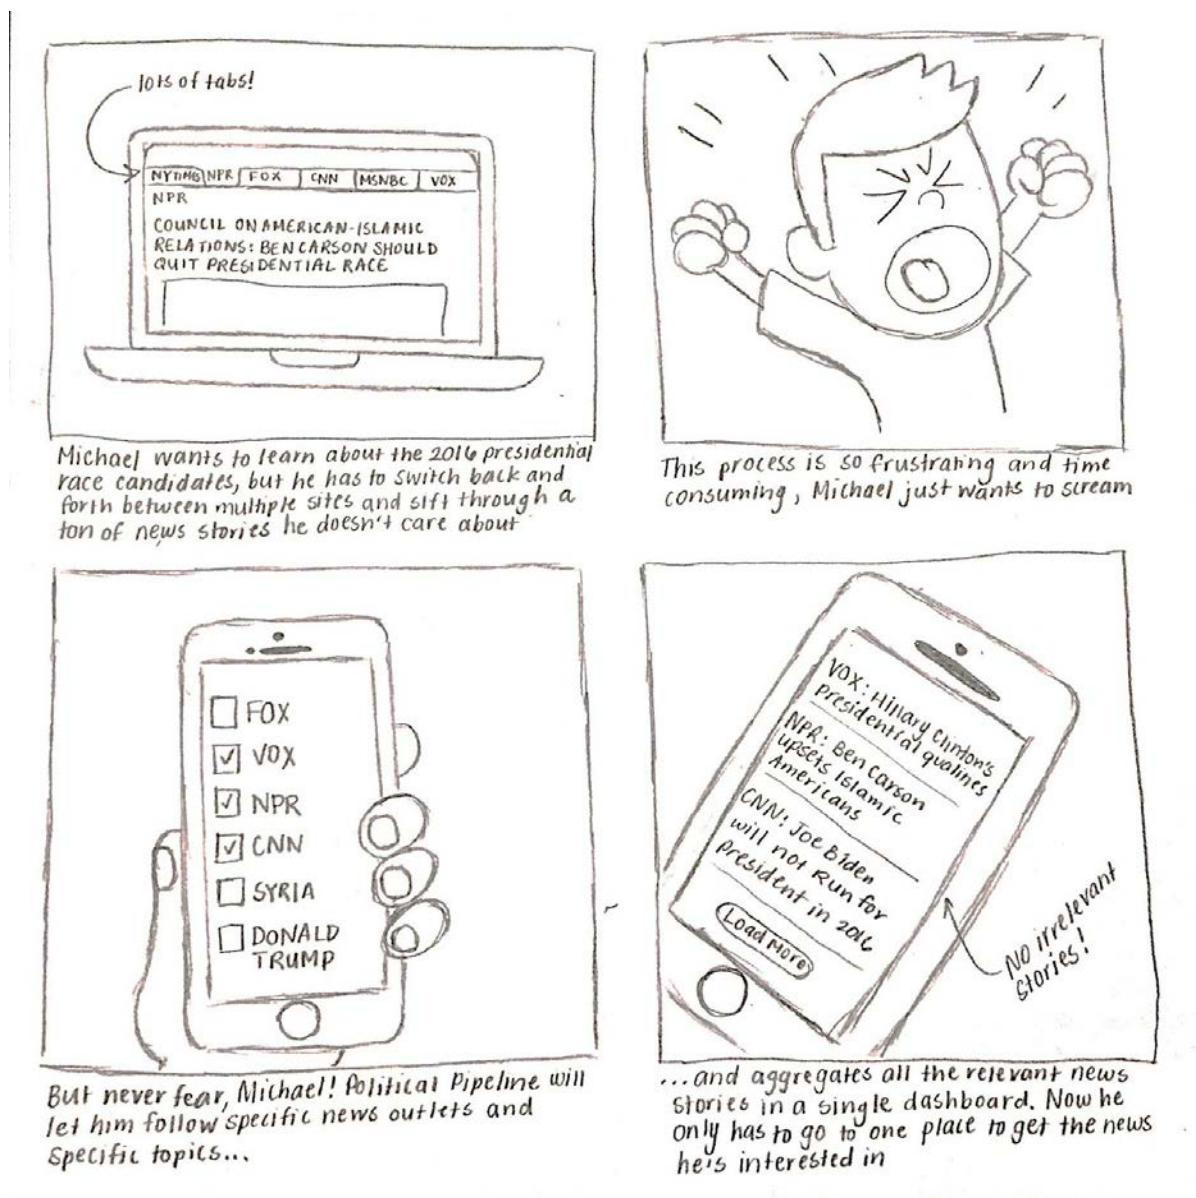 lots of tabs!
NYTIMES NPR FOX CNN MSNBC VOX
NPR
COUNCIL ON AMERICAN-ISLAMIC
RELATIONS: BEN CARSON SHOULD
QUIT PRESIDENTIAL RACE
Michael wants to learn about the 2016 presidential
race candidates, but he has to switch back and
forth between multiple sites and sift through a
ton of news stories he doesn't care about
This process is so frustrating and time
consuming, Michael just wants to scream
FOX
VOX
NPR
CNN
SYRIA
DONALD
TRUMP
But never fear, Michael! Political Pipeline will
let him follow specific news outlets and
specific topics...
VOX: Hillary Clinton's
presidential qualities
NPR: Ben Carson
upsets Islamic
Americans
CNN: Joe Biden
will not Run for
president in 2016
Load More
NO irrelevant
stories!
...and aggregates all the relevant news
stories in a single dashboard. Now he
only has to go to one place to get the news
he's interested in